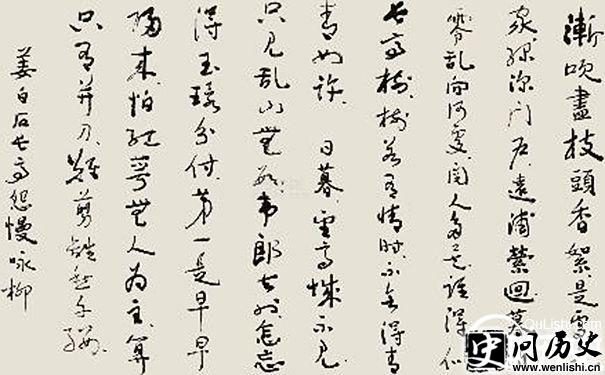 漸吹盡枝頭香絮是處
家綠深門戶遠浦縈迴暮
零亂向何處閱人多矣誰得似
长亭樹樹若有情時不會得青
青如許日暮望高城不见
只见乱山無數韦郎去也怎忘
得玉環分付第一是早早
歸来怕紅萼無人為主算
只有并刀難剪離愁千縷
姜白石长亭怨慢咏柳
QuLishi.com
问历史
www.wenlishi.cn